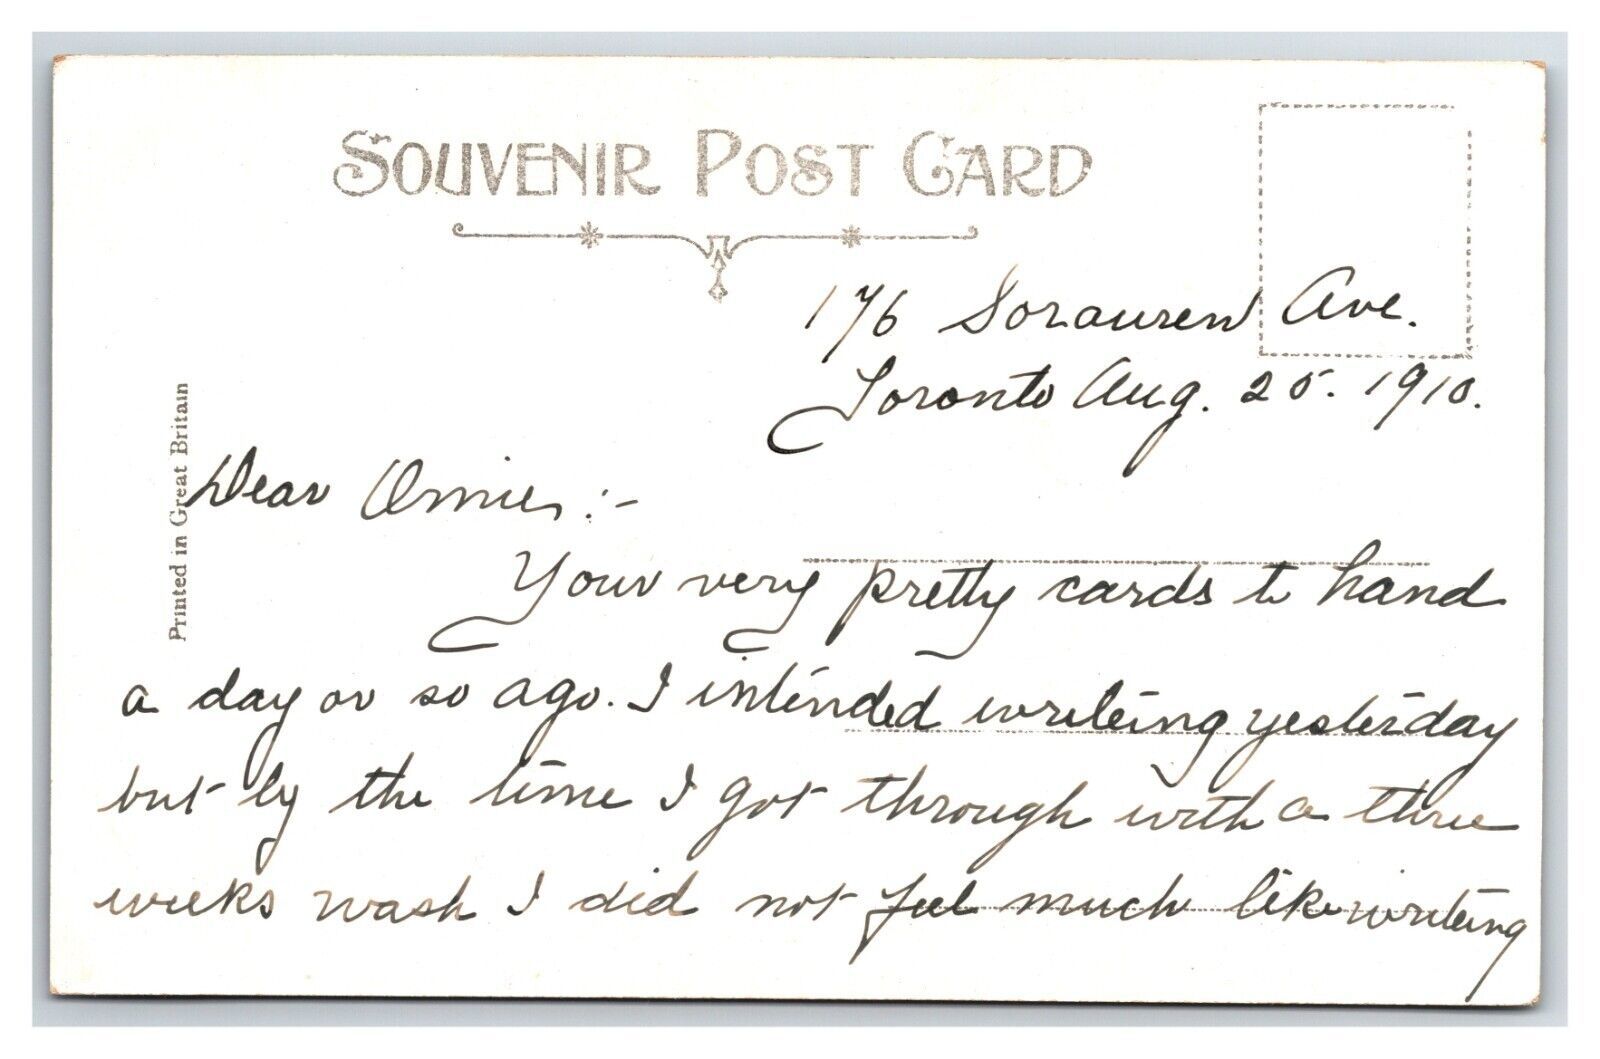 SOUVENIR POST CARD
176 Sorauren Ave.
Toronto Aug. 25. 1910.
Printed in Great Britain
Dear Ornie :-
Your very pretty cards to hand
a day or so ago. I intended writeing yesterday
but by the time I got through with a three
weeks wash I did not feel much like writeing